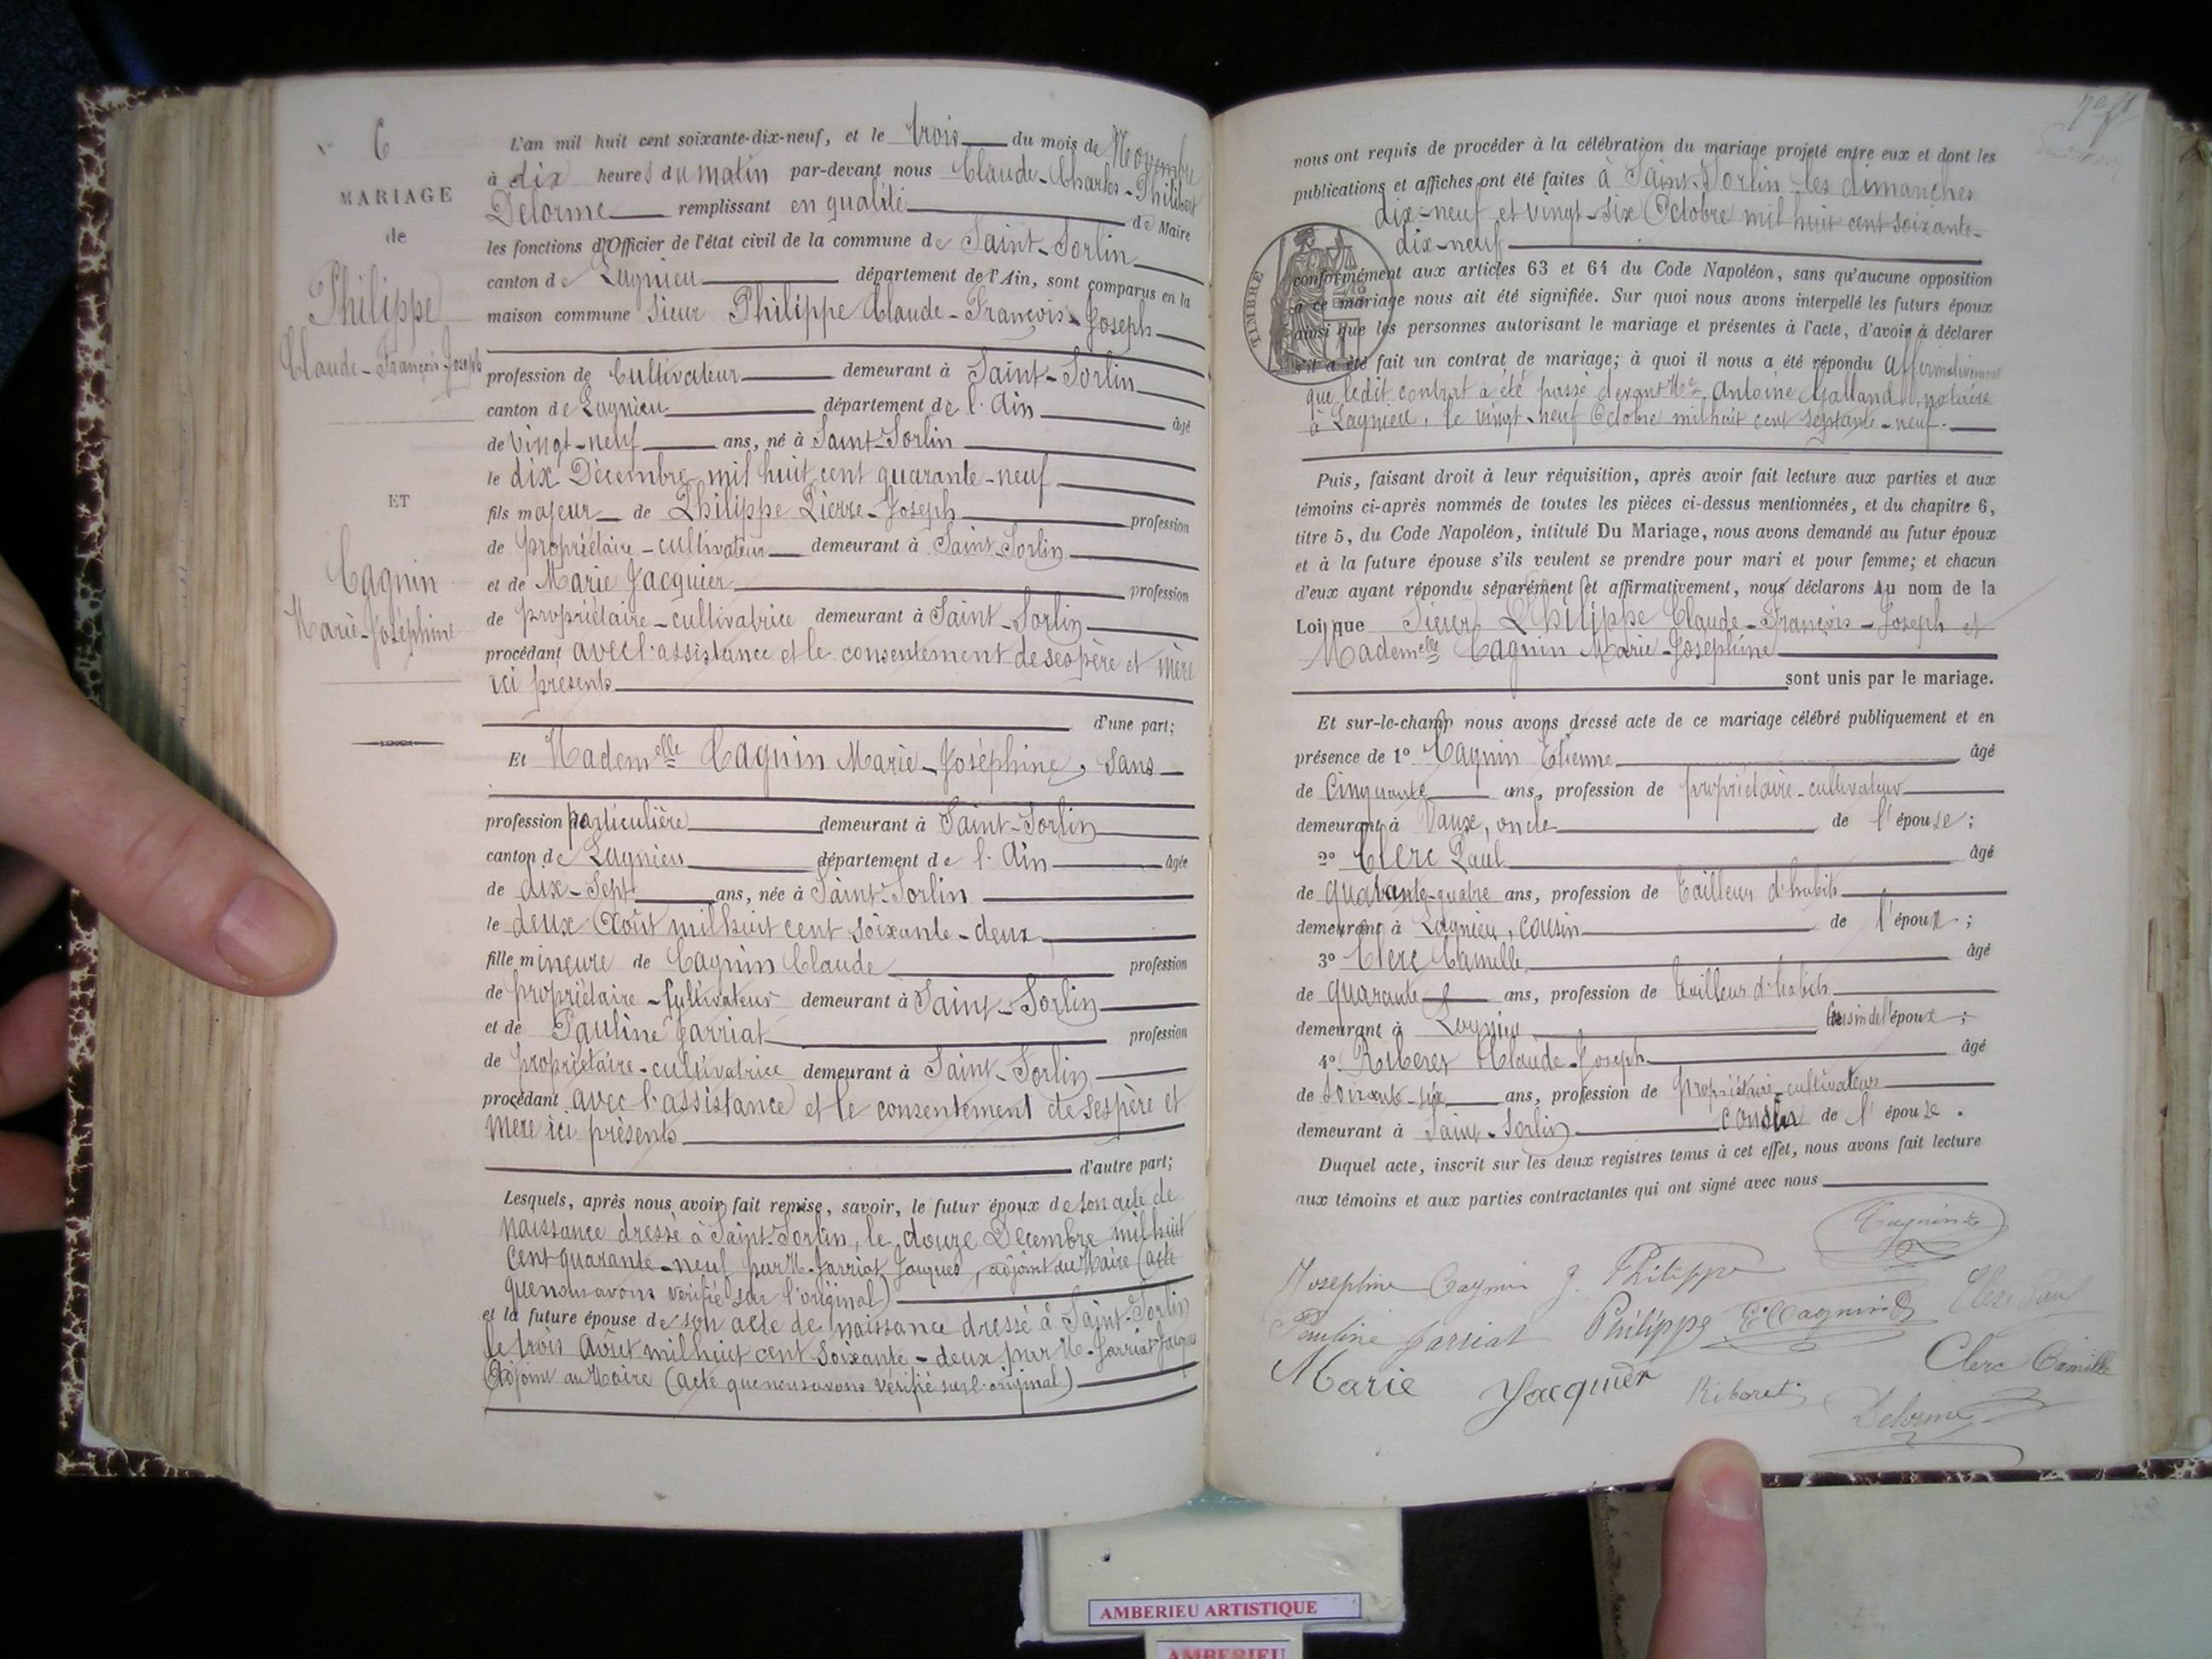 6
MARIAGE
de
Philippe
Claude-François-Joseph
ET
Cagnin
Marie-Joséphine
L'an mil huit cent soixante-dix-neuf, et le trois du mois de Novembre
à dix heures du matin par-devant nous Claude-Charles-Philibert
Delorme remplissant en qualité de Maire
les fonctions d'Officier de l'état civil de la commune de Saint-Sorlin
canton de Lagnieu département de l'Ain, sont comparus en la
maison commune Sieur Philippe Claude-François-Joseph
profession de Cultivateur demeurant à Saint-Sorlin
canton de Lagnieu département de l'Ain âgé
de vingt-neuf ans, né à Saint-Sorlin
le dix Décembre mil huit cent quarante-neuf
fils majeur de Philippe Pierre-Joseph profession
de propriétaire-cultivateur demeurant à Saint-Sorlin
et de Marie Jacquier profession
de propriétaire-cultivatrice demeurant à Saint-Sorlin
procédant avec l'assistance et le consentement de ses père et mère
ici présents
d'une part;
Et Mademelle Cagnin Marie-Joséphine, sans
profession particulière demeurant à Saint-Sorlin
canton de Lagnieu département de l'Ain âgée
de dix-sept ans, née à Saint-Sorlin
le deux Août mil huit cent soixante-deux
fille mineure de Cagnin Claude profession
de propriétaire-cultivateur demeurant à Saint-Sorlin
et de Pauline Jarriat profession
de propriétaire-cultivatrice demeurant à Saint-Sorlin
procédant avec l'assistance et le consentement de ses père et
mère ici présents
d'autre part;
Lesquels, après nous avoir fait remise, savoir, le futur époux de son acte de
naissance dressé à Saint-Sorlin, le douze Décembre mil huit
cent quarante-neuf par M. Jarriat Jacques, adjoint au Maire (acte
que nous avons vérifié sur l'original)
et la future épouse de son acte de naissance dressé à Saint-Sorlin
le trois Août mil huit cent soixante-deux par M. Jarriat Jacques
Adjoint au Maire (acte que nous avons vérifié sur l'original)
nous ont requis de procéder à la célébration du mariage projeté entre eux et dont les
publications et affiches ont été faites à Saint-Sorlin les dimanches
dix-neuf et vingt-six Octobre mil huit cent soixante-
dix-neuf
TIMBRE
conformément aux articles 63 et 64 du Code Napoléon, sans qu'aucune opposition
à ce mariage nous ait été signifiée. Sur quoi nous avons interpellé les futurs époux
ainsi que les personnes autorisant le mariage et présentes à l'acte, d'avoir à déclarer
s'il a été fait un contrat de mariage; à quoi il nous a été répondu affirmativement
que ledit contrat a été passé devant Me Antoine Galland, notaire
à Lagnieu, le vingt-neuf Octobre mil huit cent septante-neuf.
Puis, faisant droit à leur réquisition, après avoir fait lecture aux parties et aux
témoins ci-après nommés de toutes les pièces ci-dessus mentionnées, et du chapitre 6,
titre 5, du Code Napoléon, intitulé Du Mariage, nous avons demandé au futur époux
et à la future épouse s'ils veulent se prendre pour mari et pour femme; et chacun
d'eux ayant répondu séparément et affirmativement, nous déclarons Au nom de la
Loi que Sieur Philippe Claude-François-Joseph et
Mademelle Cagnin Marie-Joséphine
sont unis par le mariage.
Et sur-le-champ nous avons dressé acte de ce mariage célébré publiquement et en
présence de 1o Cagnin Etienne âgé
de cinquante ans, profession de propriétaire-cultivateur
demeurant à Vaux, oncle de l'épouse;
2o Clerc Paul âgé
de quarante-quatre ans, profession de tailleur d'habits
demeurant à Lagnieu, cousin de l'époux;
3o Clerc Camille âgé
de quarante ans, profession de tailleur d'habits
demeurant à Lagnieu cousin de l'époux;
4o Riberet Claude-Joseph âgé
de soixante-six ans, profession de propriétaire-cultivateur
demeurant à Saint-Sorlin cousin de l'épouse.
Duquel acte, inscrit sur les deux registres tenus à cet effet, nous avons fait lecture
aux témoins et aux parties contractantes qui ont signé avec nous
Cagnin
Josephine Cagnin J. Philippe
Pauline Jarriat Philippe E. Cagnin Clerc Paul
Marie Jacquier Riberet Clerc Camille
Delorme
AMBERIEU ARTISTIQUE
AMBERIEU